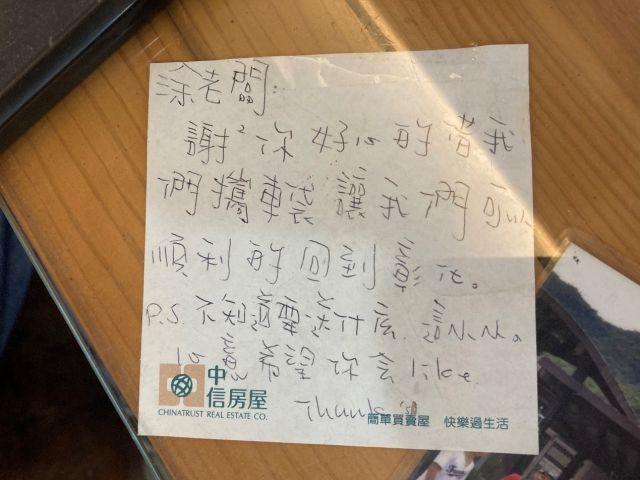 涂老闆:
謝謝你好心的借我
們攜車袋讓我們可以
順利的回到彰化。
P.S. 不知道要送什麼.這
心意希望你会like.
Thank's
中信房屋
CHINATRUST REAL ESTATE CO.
簡單買賣屋 快樂過生活